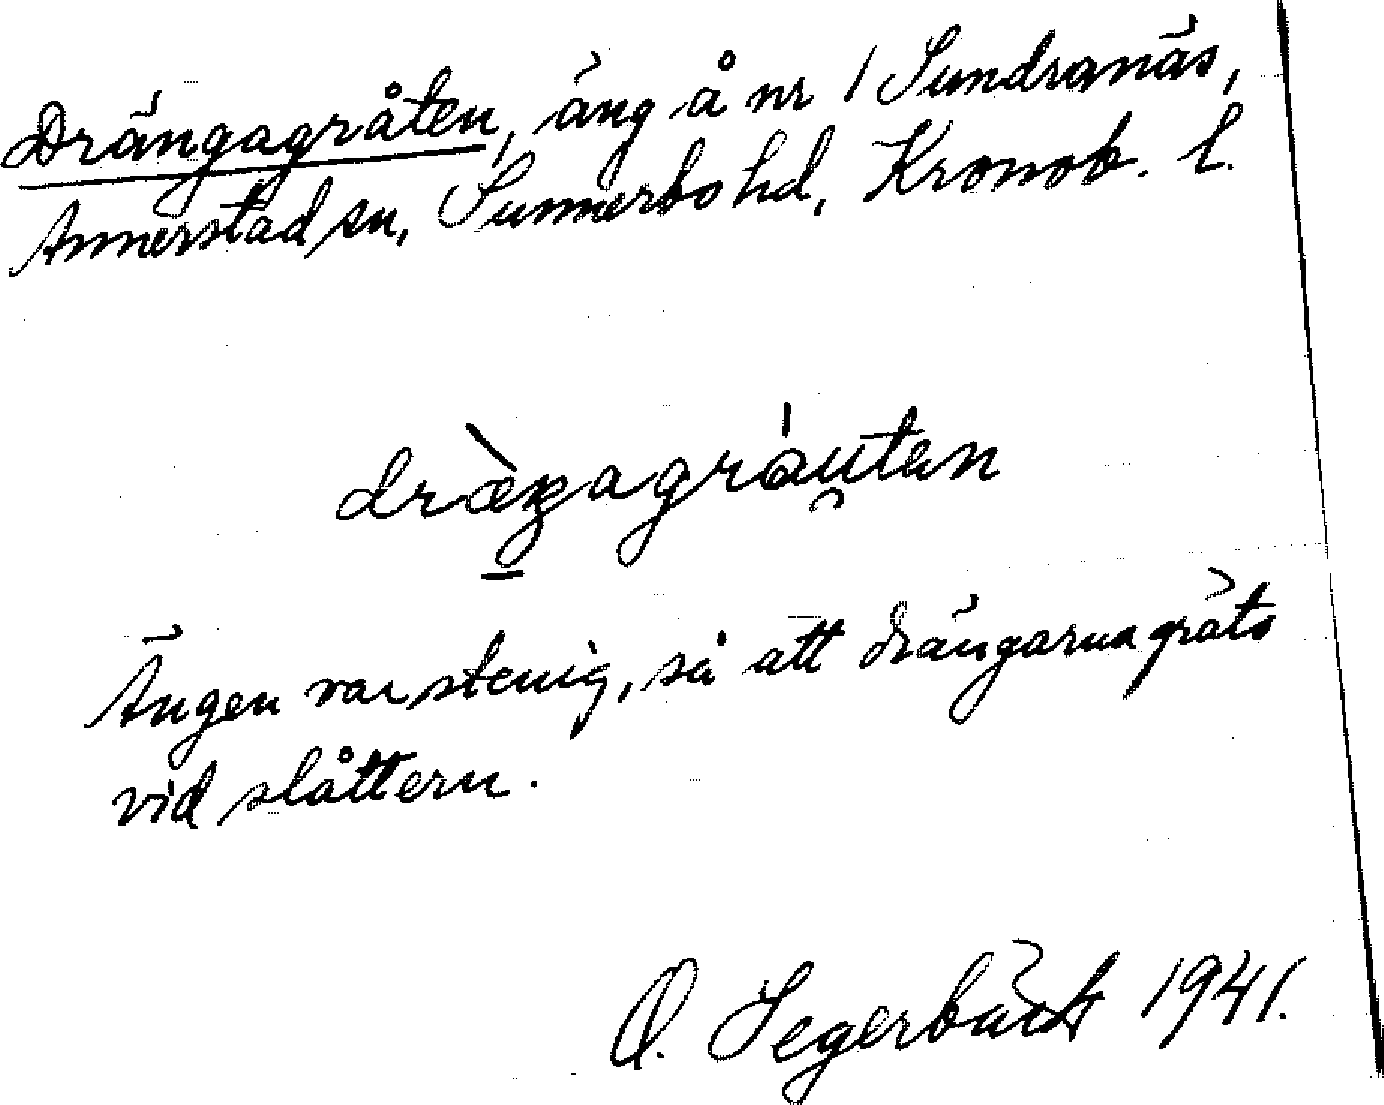 Drängagråten, äng å nr 1 Sundranäs,
Annerstad sn, Sunnerbo hd, Kronob. l.
dræ̀ŋagràu̯tən
Ängen var stenig, så att drängarna gräts
vid slåttern.
O. Segerbäck 1941.